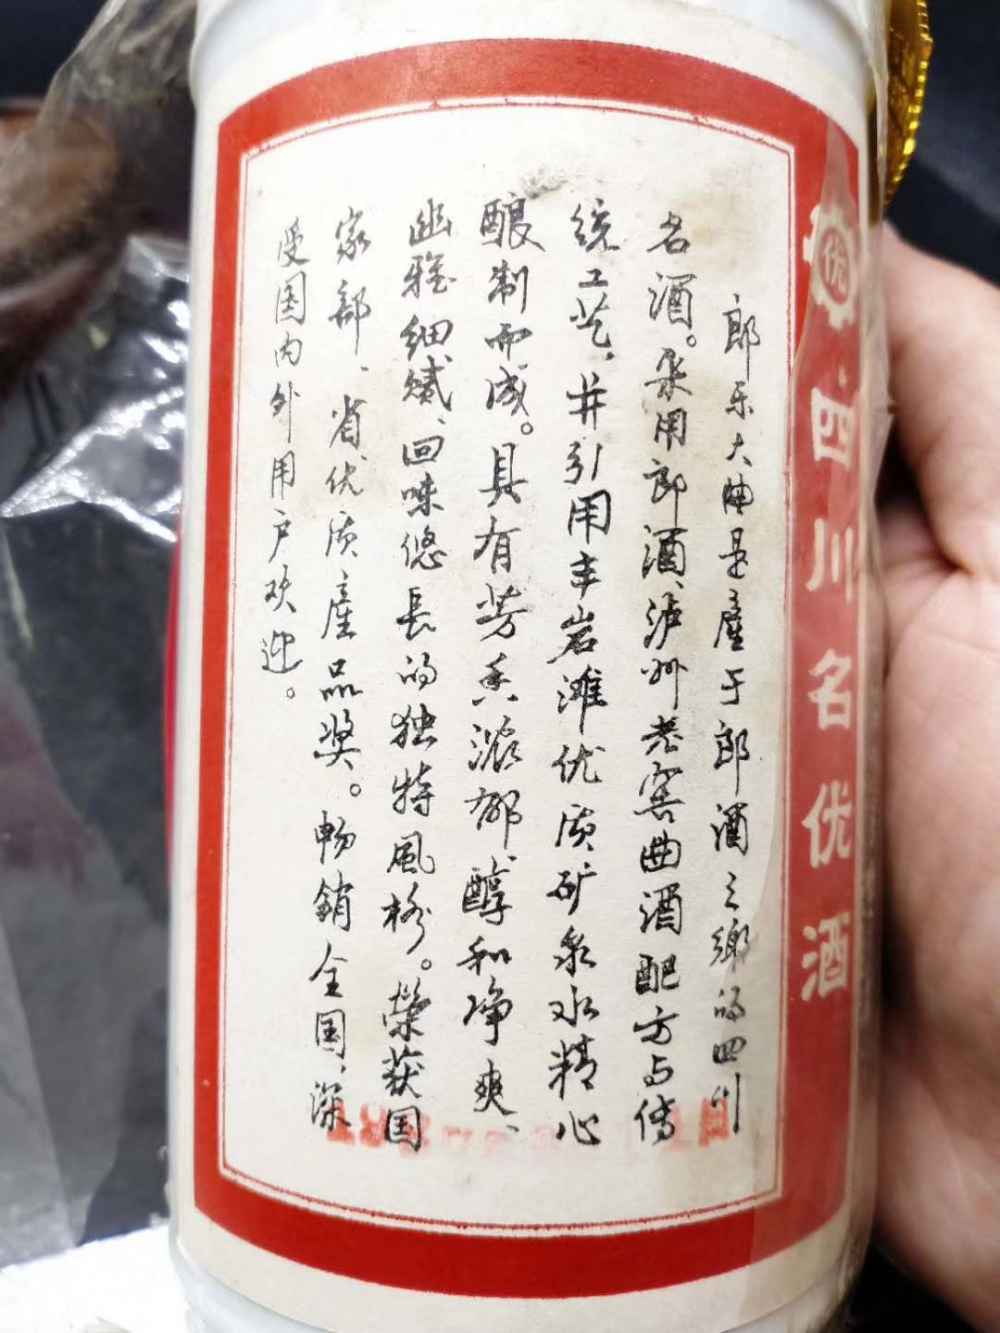 优
四川名优酒
郎乐大曲是產于郎酒之鄉的四川
名酒。采用郎酒、泸州老窖曲酒配方与传
统工艺、并引用丰岩滩优质矿泉水精心
酿制而成。具有芳香浓郁、醇和净爽、
幽雅细腻、回味悠長的独特風格。榮获国
家部、省、优质產品奖。畅銷全国、深
受国内外用户欢迎。